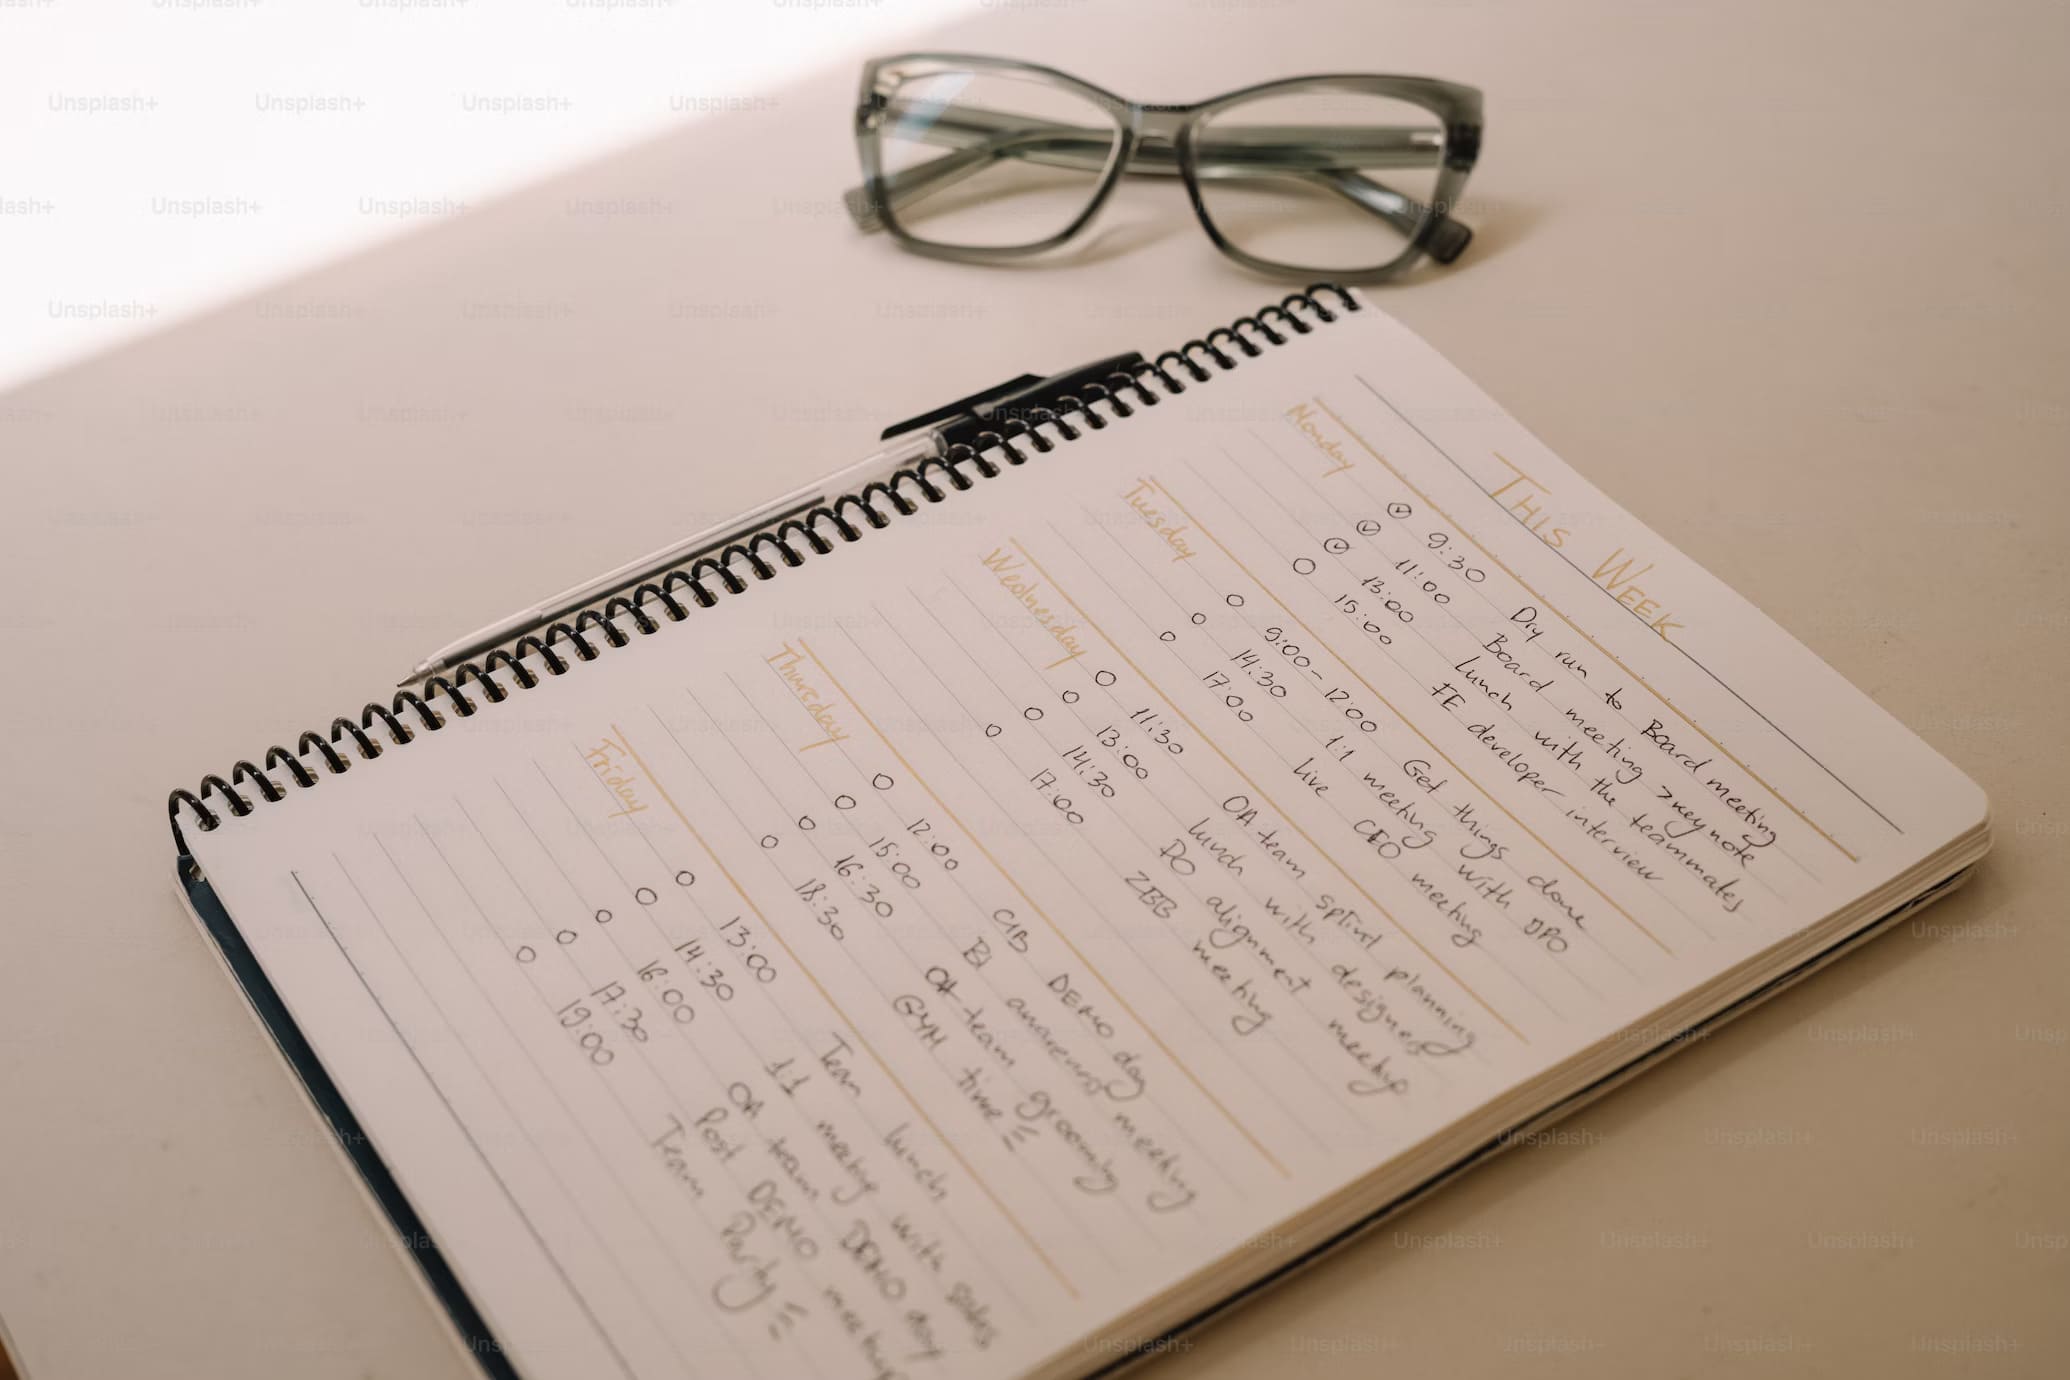 THIS WEEK
Monday
9:30 Dry run to Board meeting
11:00 Board meeting > keynote
13:00 lunch with the teammates
15:00 FE developer interview
Tuesday
9:00-12:00 Get things done
14:30 1:1 meeting with DPO
17:00 live CEO meeting
Wednesday
11:30 OA team sprint planning
13:00 lunch with designers
14:30 PO alignment meetup
17:00 ZBB meeting
Thursday
12:00 CIB DEMO day
15:00 BI awareness meeting
16:30 OA team grooming
18:30 GYM time
Friday
13:00 Team lunch
14:30 1:1 meeting with sales
16:00 OA team DEMO day
17:30 Post DEMO meetup
19:00 Team Party
Unsplash+